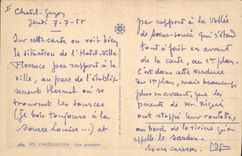 Chatel-Guyon
Jeudi 7-7-55
Sur cette carte on voit bien
la situation de l'Hotel-Villa
Florence par rapport à la
ville, au parc de l'établis-
sement thermal où se
trouvent les sources
(Je bois toujours à la
source Louise...) et
par rapport à la Vallée
de Sans-Souci qui s'étend
tout à fait en avant
de la carte, au 1er plan.
C'est dans cette verdure
au 1er plan, mais beaucoup
plus en avant, que les
parents de
ont stoppé leur roulotte,
au bord de la rivière qui
appelle le Sardon.
Bonne caresse.
CHATELGUYON - Vue générale